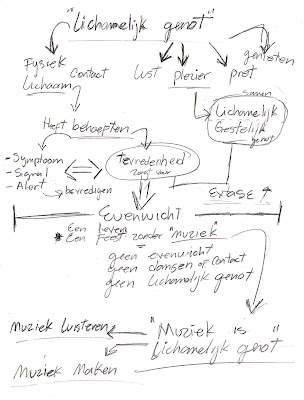 "Lichamelijk genot"
Fysiek
Lichaam
Contact
lust
plezier
pret
genieten
samen
Lichamelijk
Gestelijk
genot
Heeft behoeften
- Symptoom
- Signaal
- Alert
bevredigen
tevredenheid
zorgt voor
EXTASE
Evenwicht
Een leven
* Een Feest zonder "muziek"
geen evenwicht
geen dansen of contact
geen lichamelijk genot
Muziek luisteren
"Muziek is "
Lichamelijk genot
Muziek Maken